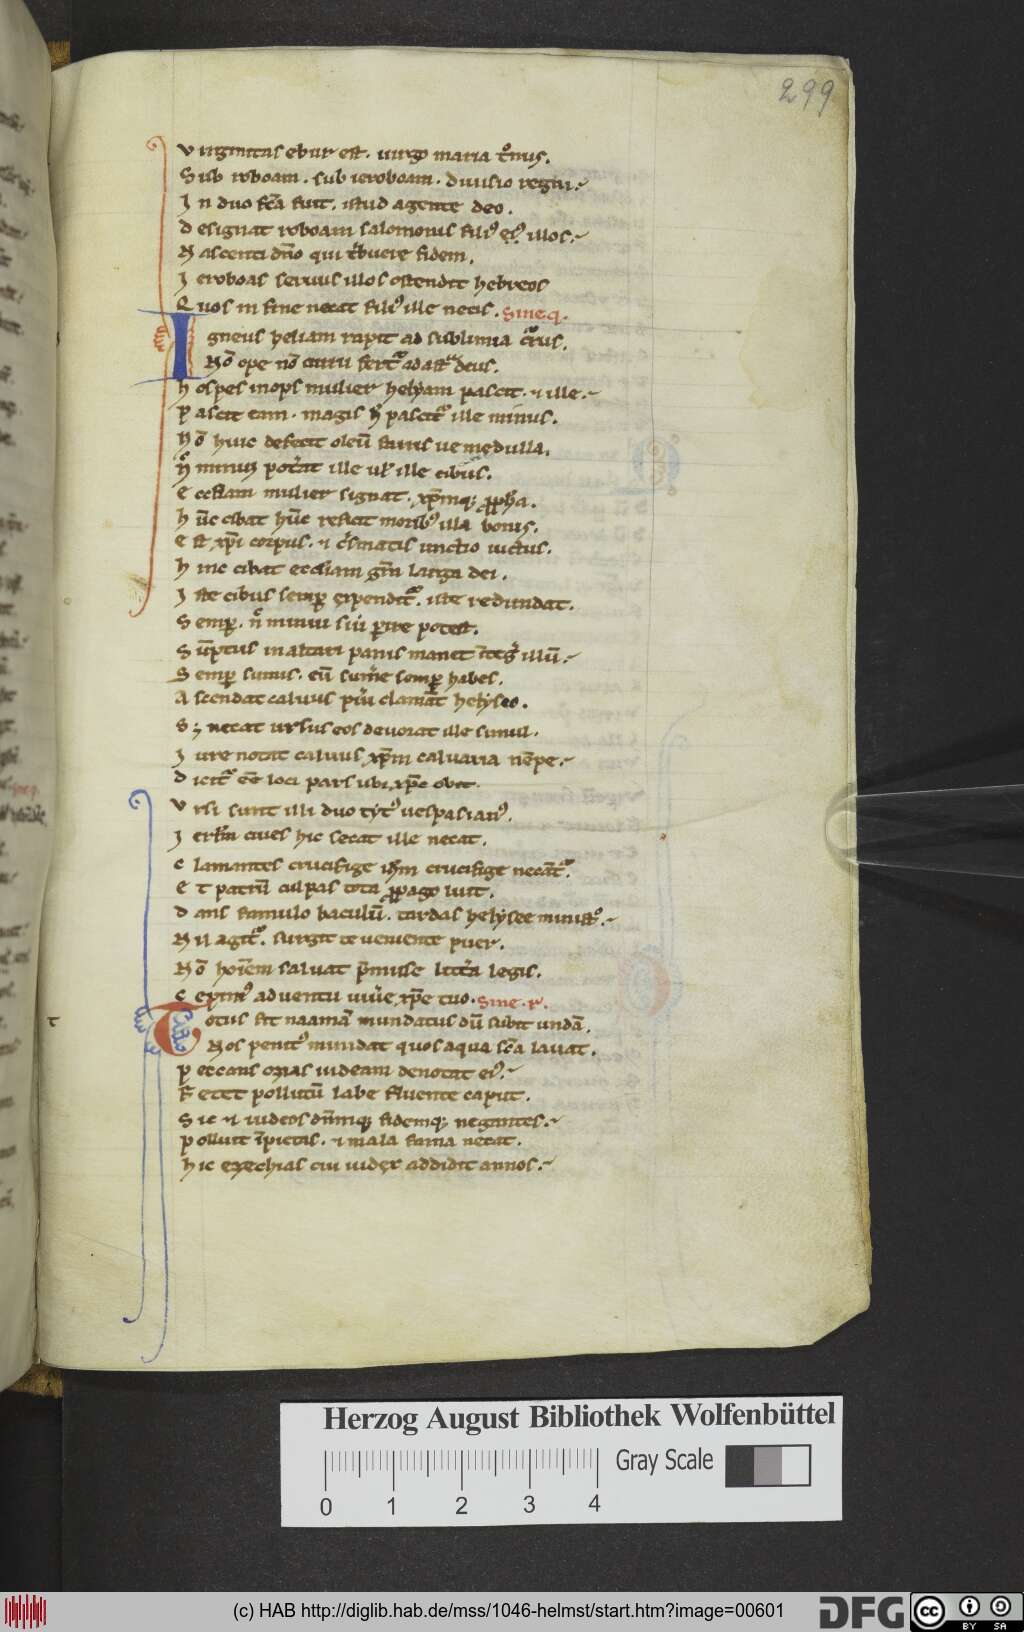 299
Virginitas ebur est. uirgo maria t͛onus.
Sub roboam. sub ieroboam. diuisio regni.
In duo scā fuit. istud agente deo.
Designat roboam salomonis filiꝰ eiꝰ illos.
Nascenti dn̄o qui t͛buere fidem.
Ieroboas seruus illos ostendit hebreos
Quos in fine necat filiꝰ ille necis. Sine q.
Igneus heliam rapit ad sublimia c͛rus.
Nō ope nō curru fert᷑ ad ast͛ deus.
Hospes inops mulier helyam pascit. ⁊ ille.
Pascit eam. magis h̄ pascit᷑ ille minus.
Nō huic defecit oleū farris ue medulla.
N̄ minus pot͛at ille ul̓ ille cibus.
Eccl̓iam mulier signat. xp̄mq; ꝓph̓a.
Hūc cibat hūc reficit moribꝰ illa bonis.
Est xp̄i corpus. ⁊ c͛smatis unctio uictus.
Hinc cibat eccl̓iam gr̄a larga dei.
Iste cibus semꝑ expendit᷑. iste redundat.
Semꝑ. n̄ minui siu ꝑire potest.
Sūptus in altari panis manet īteg͛ illū.
Semꝑ sumus. cū sum͛e semꝑ habes.
Ascendat caluus pu͛i clamāt helyseo.
S; necat ursus eos deuorat ille simul.
Iure notat caluus xp̄m caluaria nēpe.
Dicit᷑ eē loci pars ubi xp̄c obit.
Vrsi sunt illi duo tytꝰ uespasianꝰ.
Ierl̓m ciues hic secat ille necat.
Clamantes crucifige ih̄m crucifige necāt᷑.
Et patrū culpas tota ꝓpago luit.
Dans famulo baculū. tardas helysee minist͛o.
Nil agit᷑. surgit te ueniente puer.
Nō hoīem saluat p͛misse litt͛a legis.
Cepimꝰ aduentu uiu͛e xp̄e tuo. Sine. r.
Totus fit naamā mundatus dū subit undā.
Nos penitꝰ mundat quos aqua scā lauat.
Peccans ozias iudeam denotat eiꝰ.
Fetet pollutū labe fluente caput.
Sic ⁊ iudeos dn̄mq; fidemq; negantes.
Polluit īpietas. ⁊ mala fama necat.
Hic ezechias cui iudex addidit annos.
Herzog August Bibliothek Wolfenbüttel
Gray Scale
0 1 2 3 4
(c) HAB http://diglib.hab.de/mss/1046-helmst/start.htm?image=00601
DFG
cc BY SA